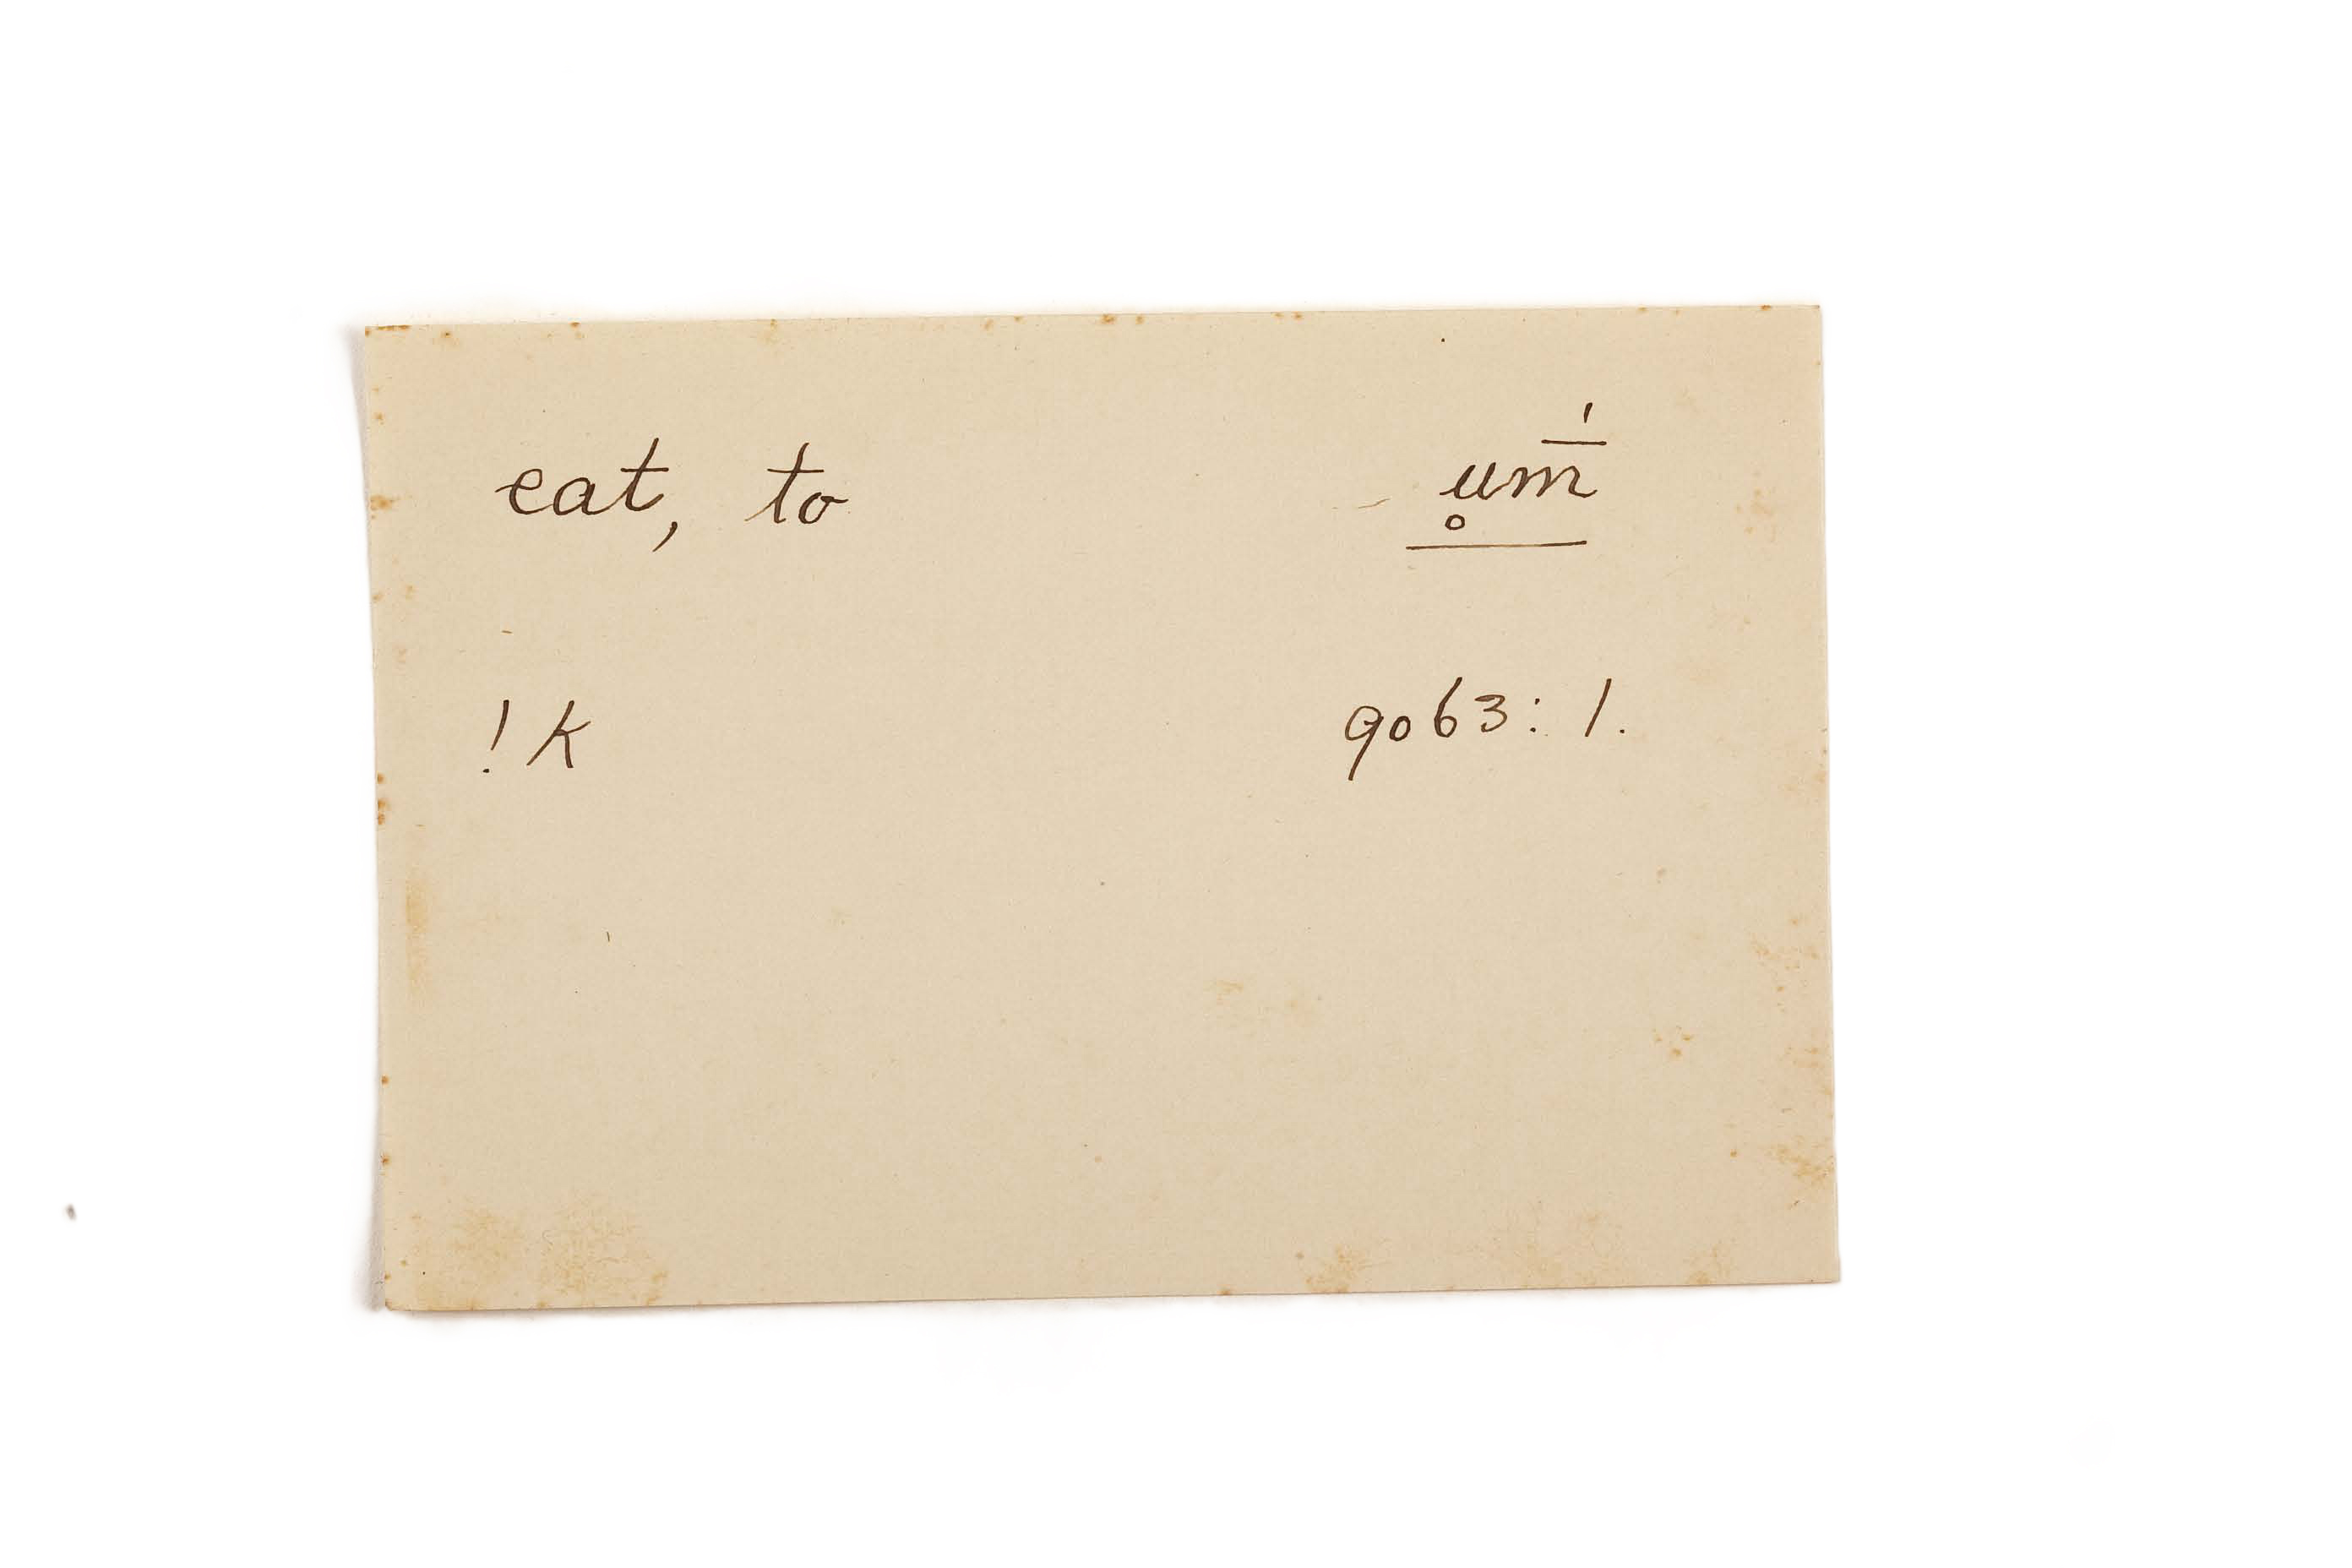 eat, to u̥m̄́
!k 9063: 1.